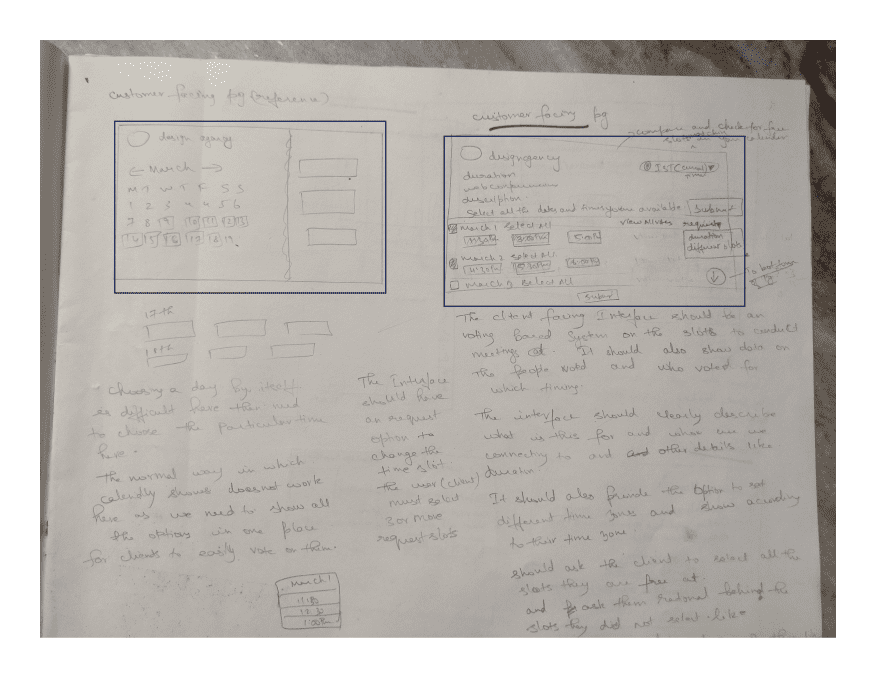 customer facing pg (reference)
design agency
← March →
M T W T F S S
1 2 3 4 4 5 6
7 8 9 10 11 12 13
14 15 16 17 18 19
17th
18th
Choosing a day by itself
is difficult here then need
to choose the particular time
here.
The normal way in which
calendly shows does not work
here as we need to show all
the options in one place
for clients to easily vote on them.
The Interface
should have
an request
option to
change the
time slot
the user (client)
must select
3 or more
request slots
March 1
customer facing pg
compare and check for free
slots in your calendar
design agency
IST (current) ▾
time
duration
web conference
description
select all the dates and times you are available
Submit
March 1 Select All
view all votes
request
11:30
5:00
duration
different slots
March 2 Select All
4:30
March 3 Select All
Submit
The client facing Interface should be an
voting Based System on the slots to conduct
meeting at. It should also show data on
the people voted and who voted for
which timing.
The interface should clearly describe
what is this for and when are we
connecting to and other details like
duration
It should also provide the option to set
different time zones and show according
to their time zone.
should ask the client to select all the
slots they are free at.
and ask them rational behind the
slots they did not select like